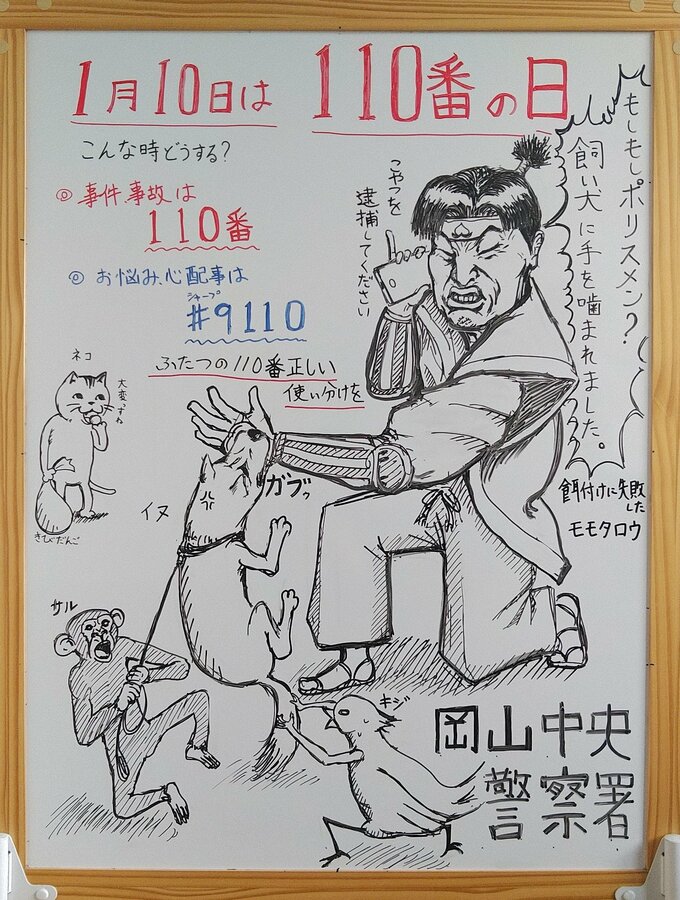 1月10日は 110番の日
こんな時どうする?
◎事件、事故は
110番
◎お悩み、心配事は
シャープ
#9110
ふたつの110番正しい
使い分けを
もしもしポリスメン?
飼い犬に手を噛まれました。
こやつを
逮捕してください
餌付けに失敗
した
モモタロウ
ネコ
大変っすね
きびだんご
イヌ
ガブッ
サル
キジ
岡山中央
警察署